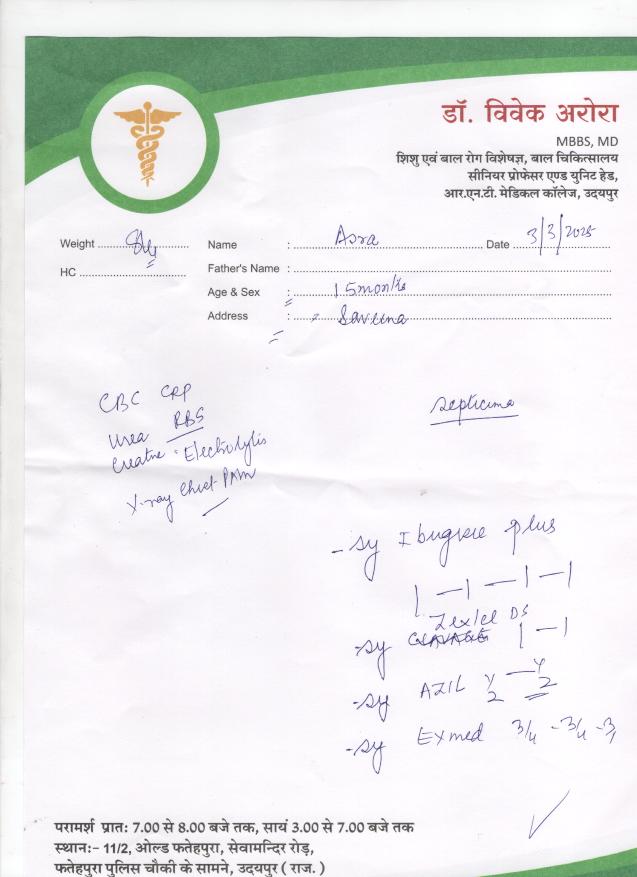 डॉ. विवेक अरोरा
MBBS, MD
शिशु एवं बाल रोग विशेषज्ञ, बाल चिकित्सालय
सीनियर प्रोफेसर एण्ड यूनिट हेड,
आर.एन.टी. मेडिकल कॉलेज, उदयपुर
Weight Name : Asra Date 3/3/2025
HC Father's Name :
Age & Sex : 15 months
Address : Saveena
CBC CRP
Urea RBS
Electrolytis
X-ray Chest
Septicima
- sy plus
1 - 1 - 1 - 1
DS
- sy 1 - 1
- sy AZIL 1/2 - 1/2
- sy Exmed 3/4 - 3/4 -
परामर्श प्रात: 7.00 से 8.00 बजे तक, सायं 3.00 से 7.00 बजे तक
स्थान:- 11/2, ओल्ड फतेहपुरा, सेवामन्दिर रोड़,
फतेहपुरा पुलिस चौकी के सामने, उदयपुर ( राज. )